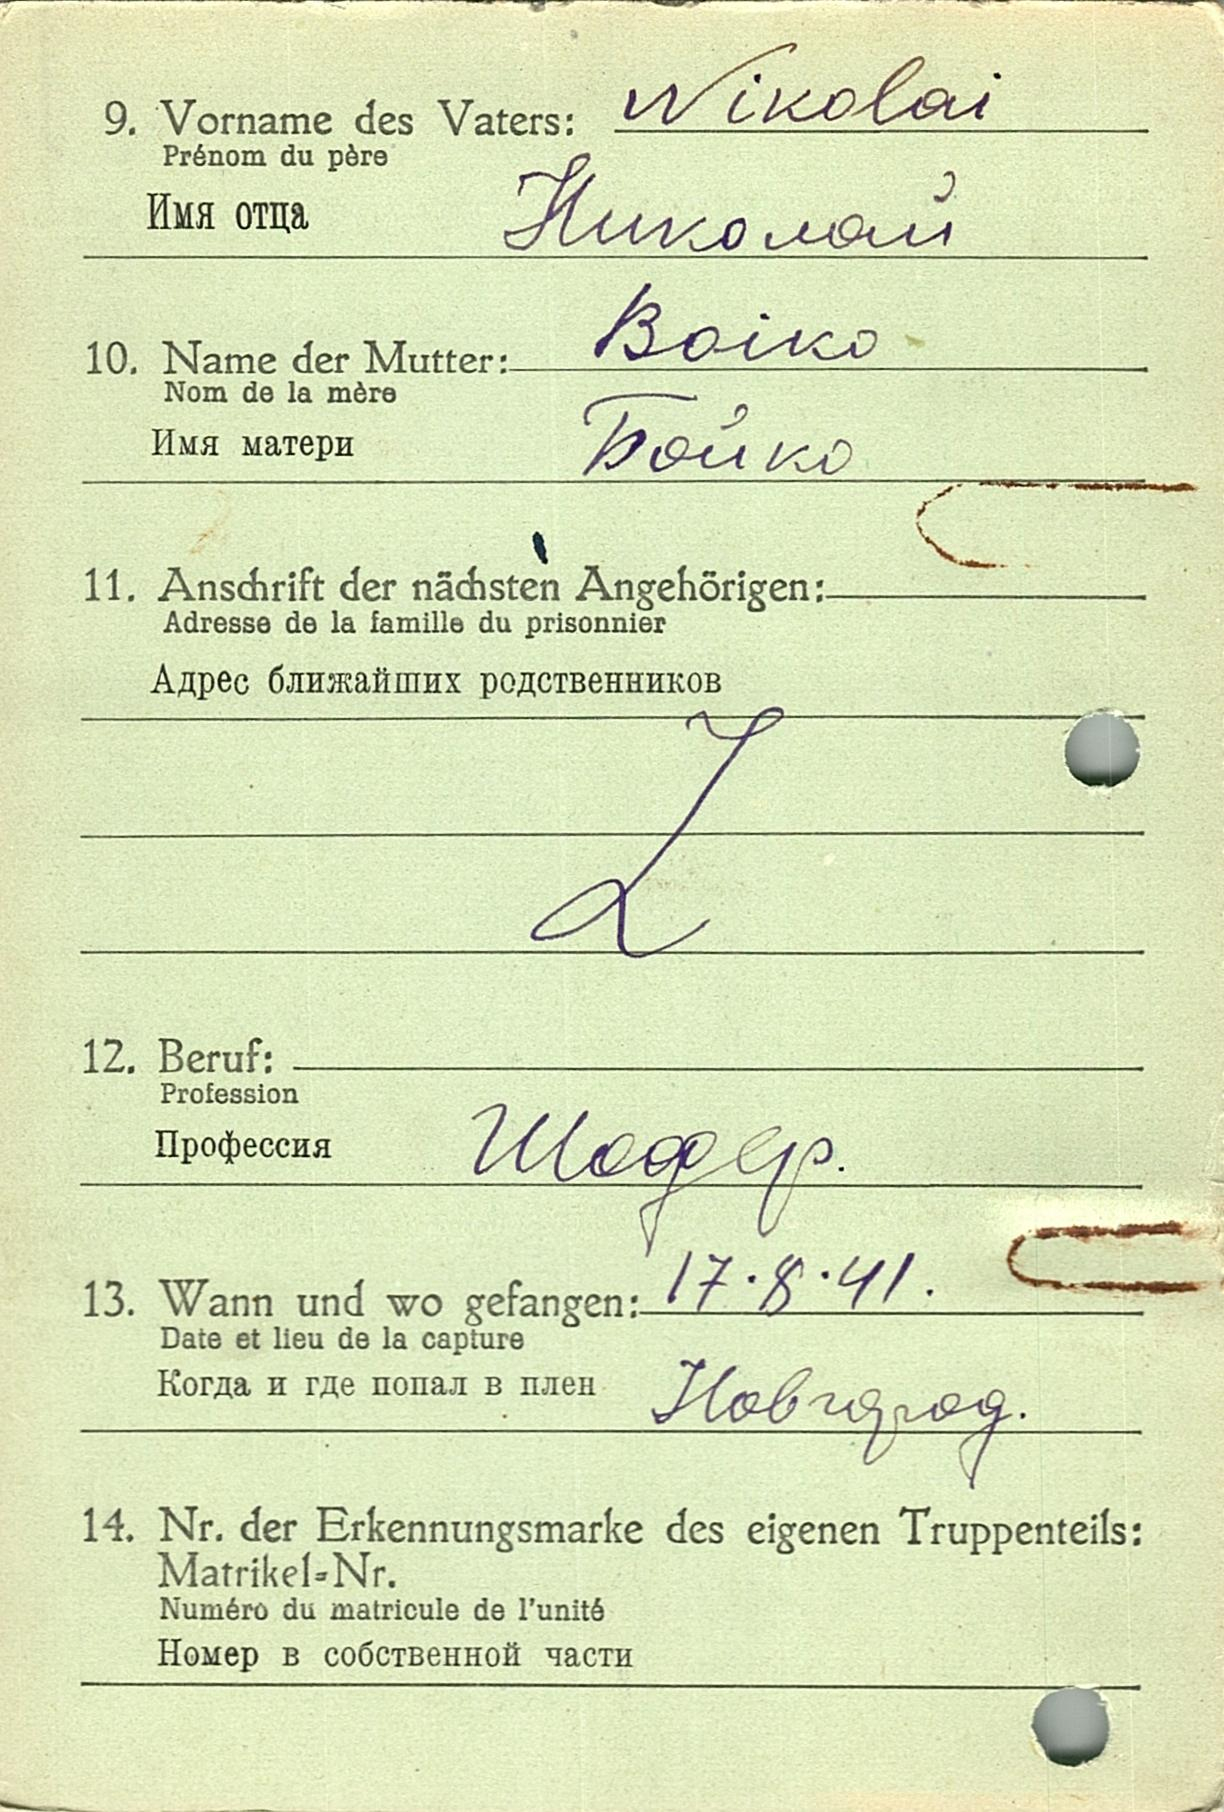 9. Vorname des Vaters: Nikolai
Prénom du père
Имя отца Николай
10. Name der Mutter: Boiko
Nom de la mère
Имя матери Бойко
11. Anschrift der nächsten Angehörigen:
Adresse de la famille du prisonnier
Адрес ближайших родственников
Z
12. Beruf:
Profession
Профессия Шофер.
13. Wann und wo gefangen: 17.8.41.
Date et lieu de la capture
Когда и где попал в плен Новгород.
14. Nr. der Erkennungsmarke des eigenen Truppenteils:
Matrikel-Nr.
Numéro du matricule de l'unité
Номер в собственной части